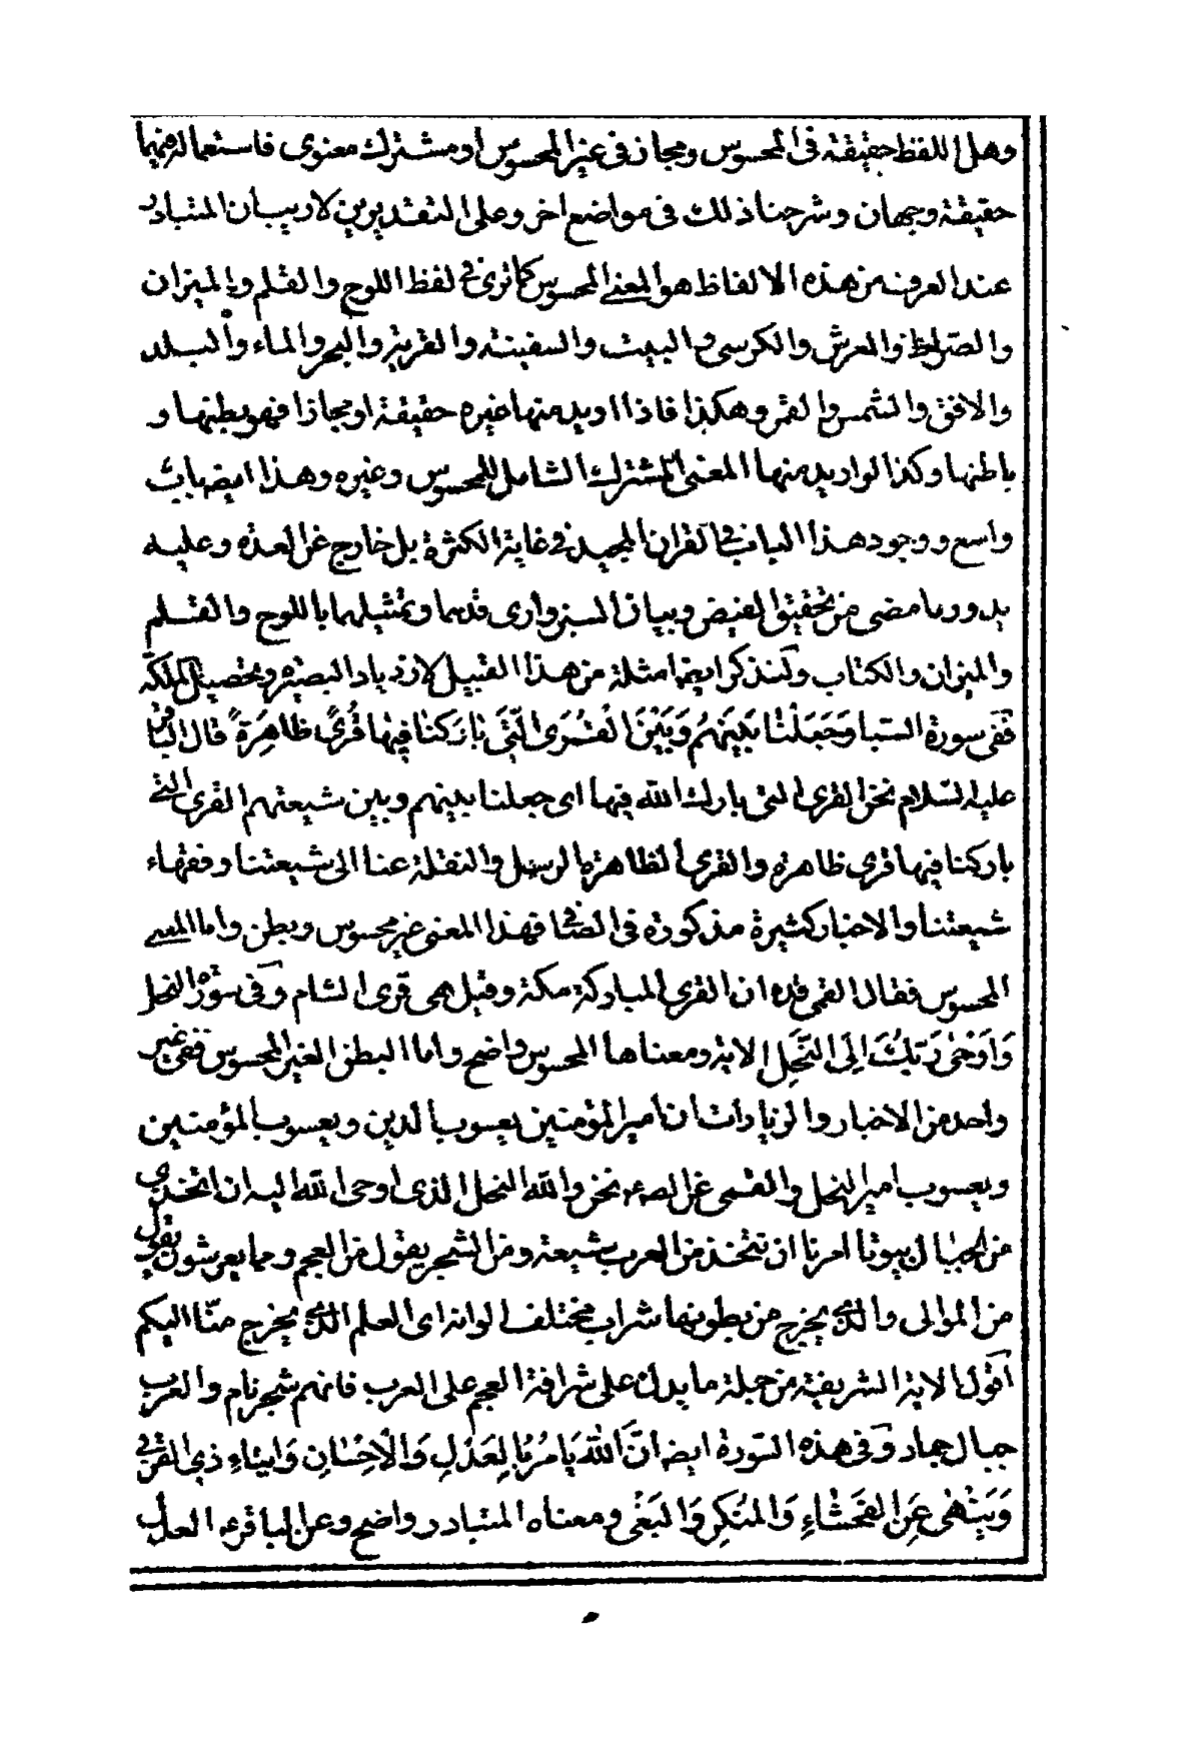 وهل اللفظ حقيقة فى المحسوس ومجاز فى غير المحسوس او مشترك معنوى فاستعماله فيهما
حقيقة وجهان وشرحنا ذلك فى مواضع اخر وعلى التقديرين لا ريب ان المتبادر
عند العرف من هذه الالفاظ هو المعنى المحسوس كما ترى فى لفظ اللوح والقلم والميزان
والصراط والعرش والكرسى والبيت والسفينة والقرية والبحر والماء والبلد
والافق والشمس والقمر وهكذا فاذا اريد منها غيره حقيقة او مجازا فهو بطنها و
باطنها وكذا لو اريد منها المعنى المشترك الشامل للمحسوس وغيره وهذا ايضا باب
واسع ووجود هذا الباب فى القران المجيد فى غاية الكثرة بل خارج عن العده وعليه
يدور ما مضى من تحقيق الفيض وبيان السبزوارى قدهما وتمثيلهما باللوح والقلم
والميزان والكتاب ولنذكر ايضا امثلة من هذا القبيل لازدياد البصيره وتحصيل الملكة
ففى سورة السبا وَجَعَلْنا بَيْنَهُم وَبَيْنَ الْقُرَى الَّتى بارَكنا فيها قُرًى ظاهِرَةً قال الباقر
عليه السلام نحن القرى التى بارك الله فيها اى جعلنا بينهم وبين شيعتهم القرى التى
باركنا فيها قرى ظاهره والقرى الظاهرة الرسل والنقلة عنا الى شيعتنا وفقهاء
شيعتنا والاخبار كثيرة مذكورة فى الصافى فهذا المعنى غير محسوس وبطن واما المعنى
المحسوس فقال القمى قده ان القرى المباركة مكة وقيل هى قرى الشام وفى سورة النحل
وَاَوْحى رَبُّكَ اِلَى النَّحْلِ الاية ومعناها المحسوس واضح واما البطن الغير المحسوس ففى غير
واحد من الاخبار والزيادات ان امير المؤمنين يعسوب الدين ويعسوب المؤمنين
ويعسوب امير النحل والقمى عن الصء نحن والله النحل الذى اوحى الله اليه ان اتخذى
من الجبال بيوتا امرنا ان نتخذ من العرب شيعة ومن الشجر يقول من العجم ومما يعرشون يقول
من الموالى والذى يخرج من بطونها شراب مختلف الوانه اى العلم الذى يخرج منّا اليكم
اقول الاية الشريفة من جملة ما يدل على شرافة العجم على العرب فانهم شجر نام والعرب
جبال جماد وفى هذه السّورة ايضا انَّ اللهَ يَامُرُ بِالْعَدْلِ وَالْاِحْسانِ وَايتاءِ ذى القربى
وَيَنْهى عَنِ الْفَحْشاءِ وَالمُنْكَرِ وَالْبَغْى ومعناه المتبادر واضح وعن الباقرء العدل